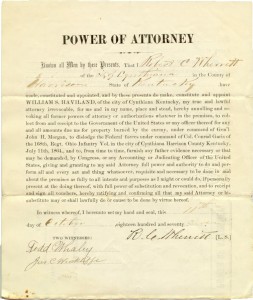 POWER OF ATTORNEY
Know all Men by these Presents, That I Robert C Wherritt
of Cynthiana in the County of
Harrison State of Kentucky have
made, constituted and appointed, and by these presents do make, constitute and appoint
WILLIAM S HAVILAND, of the city of Cynthiana Kentucky, my true and lawful
attorney irrevocable, for me and in my name, place and stead, hereby annulling and re-
voking all former powers of attorney or authorizations whatever in the premises, to col-
lect from and receipt to the Government of the United States or any officer thereof for any
and all amounts due me for property burned by the enemy, under command of Gen'l
John H. Morgan, to dislodge the Federal forces under command of Col. Conrad Garis of
the 168th, Regt. Ohio Infantry Vol. in the city of Cynthiana Harrison County Kentucky,
July 11th, 1864, and to, from time to time, furnish any further evidence necessary or that
may be demanded, by Congress, or any Accounting or Judicating Officer of the United
States, giving and granting to my said Attorney full power and authority to do and per-
form all and every act and thing whatsoever requisite and necessary to be done in and
about the premises as fully to all intents and purposes as I might or could do, if personally
present at the doing thereof, with full power of substitution and revocation, and to receipt
and sign all vouchers, hereby ratifying and confirming all that my said Attorney or his
substitute may or shall lawfully do or cause to be done by virtue hereof.
In witness whereof, I hereunto set my hand and seal, this
day of October eighteen hundred and seventy
TWO WITNESSES: R. C. Wherritt [L. S.]